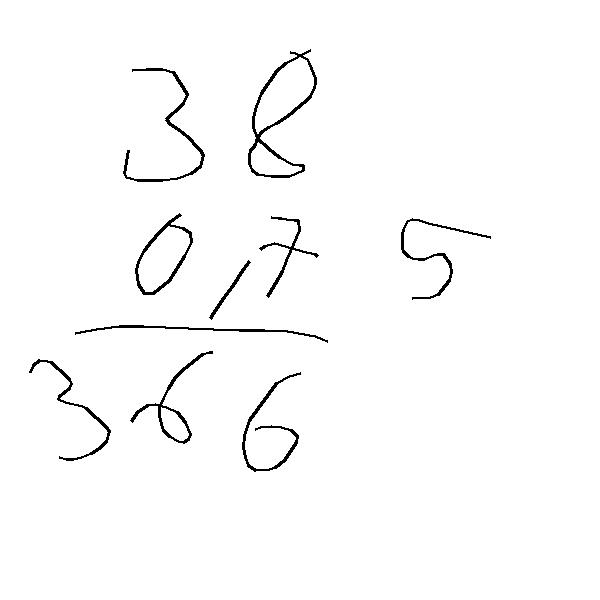 38
0,75
366